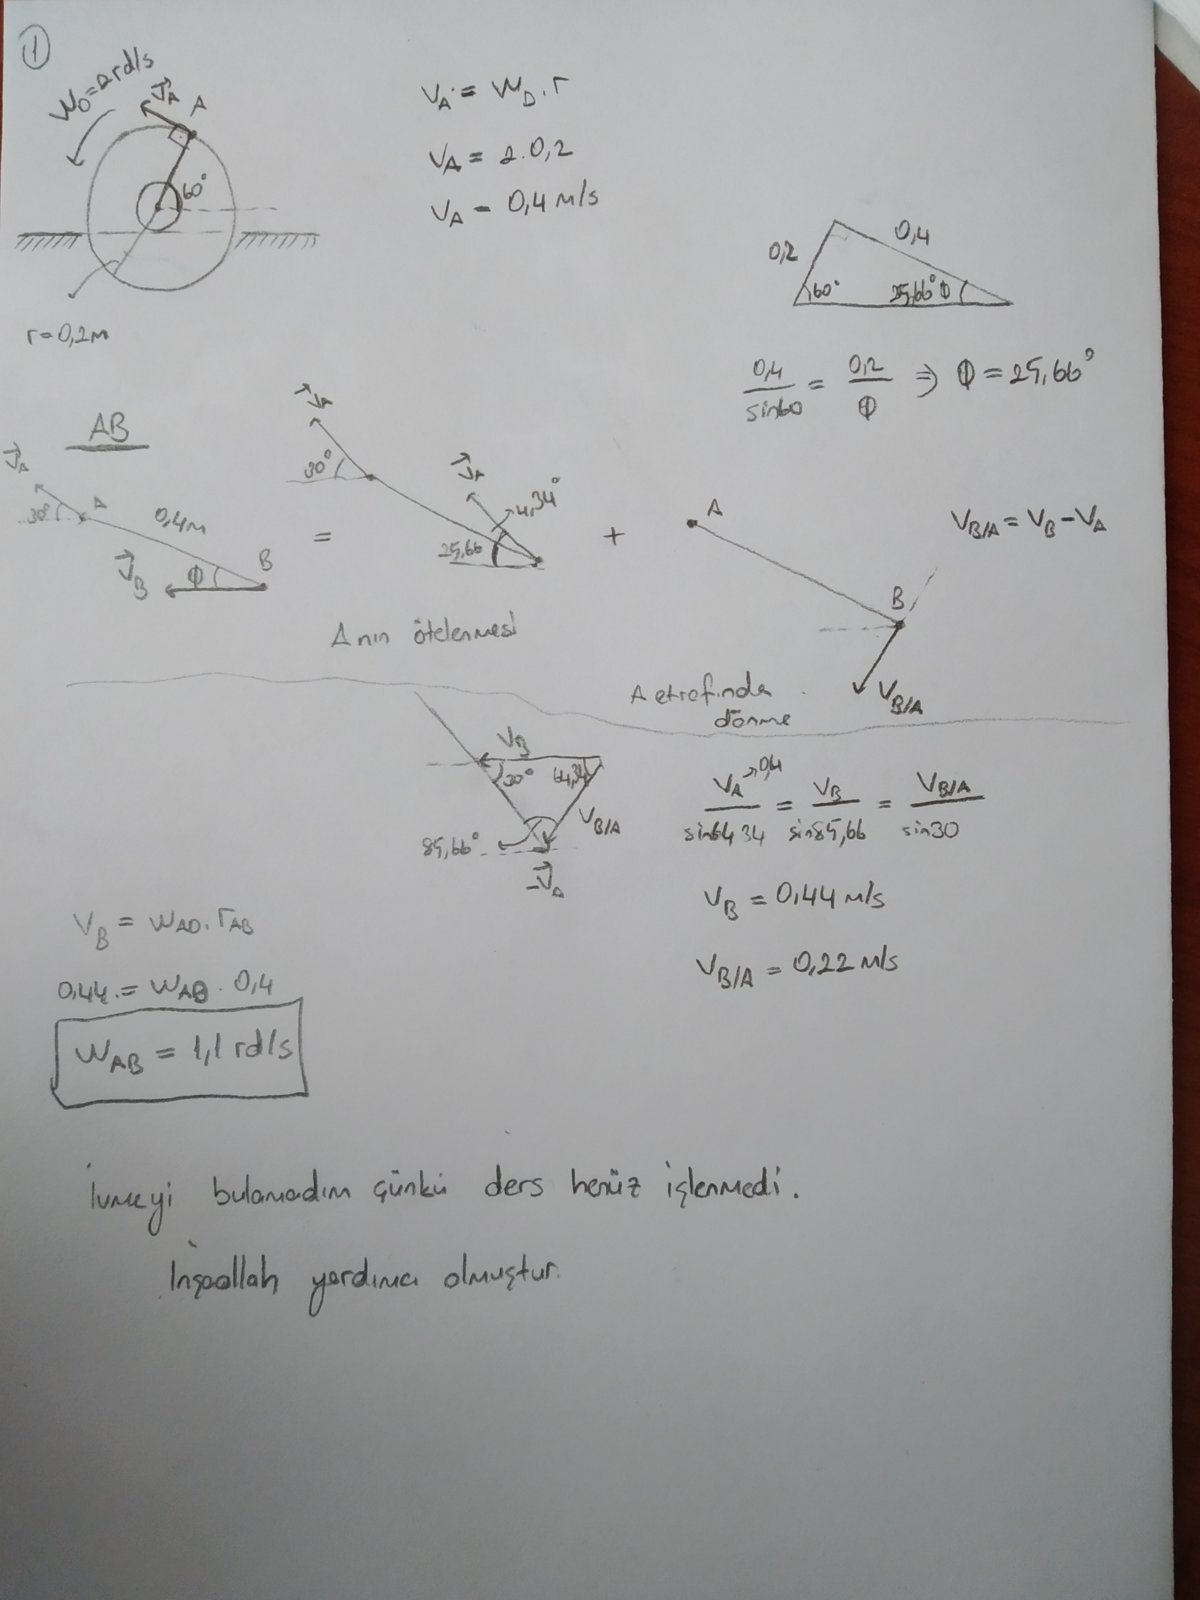 1
W_D = 2 rd/s
V⃗_A
A
60°
r = 0,2 m
V_A = W_D . r
V_A = 2 . 0,2
V_A = 0,4 m/s
0,2
0,4
60°
25,66° Φ
0,4/sin60 = 0,2/Φ ⇒ Φ = 25,66°
AB
V⃗_A
30°
A
0,4m
V⃗_B
Φ
B
=
V⃗_A
30°
V⃗_A
4,34°
25,66
+
A
B
V_B/A
V_B/A = V_B - V_A
A nın ötelenmesi
A etrafında
dönme
V_B
30°
64,34
V_B/A
85,66°
-V⃗_A
V_A→0,4/sin64,34 = V_B/sin85,66 = V_B/A/sin30
V_B = 0,44 m/s
V_B/A = 0,22 m/s
V_B = W_AB . r_AB
0,44 = W_AB . 0,4
W_AB = 1,1 rd/s
İvmeyi bulamadım çünkü ders henüz işlenmedi.
İnşaallah yardımcı olmuştur.